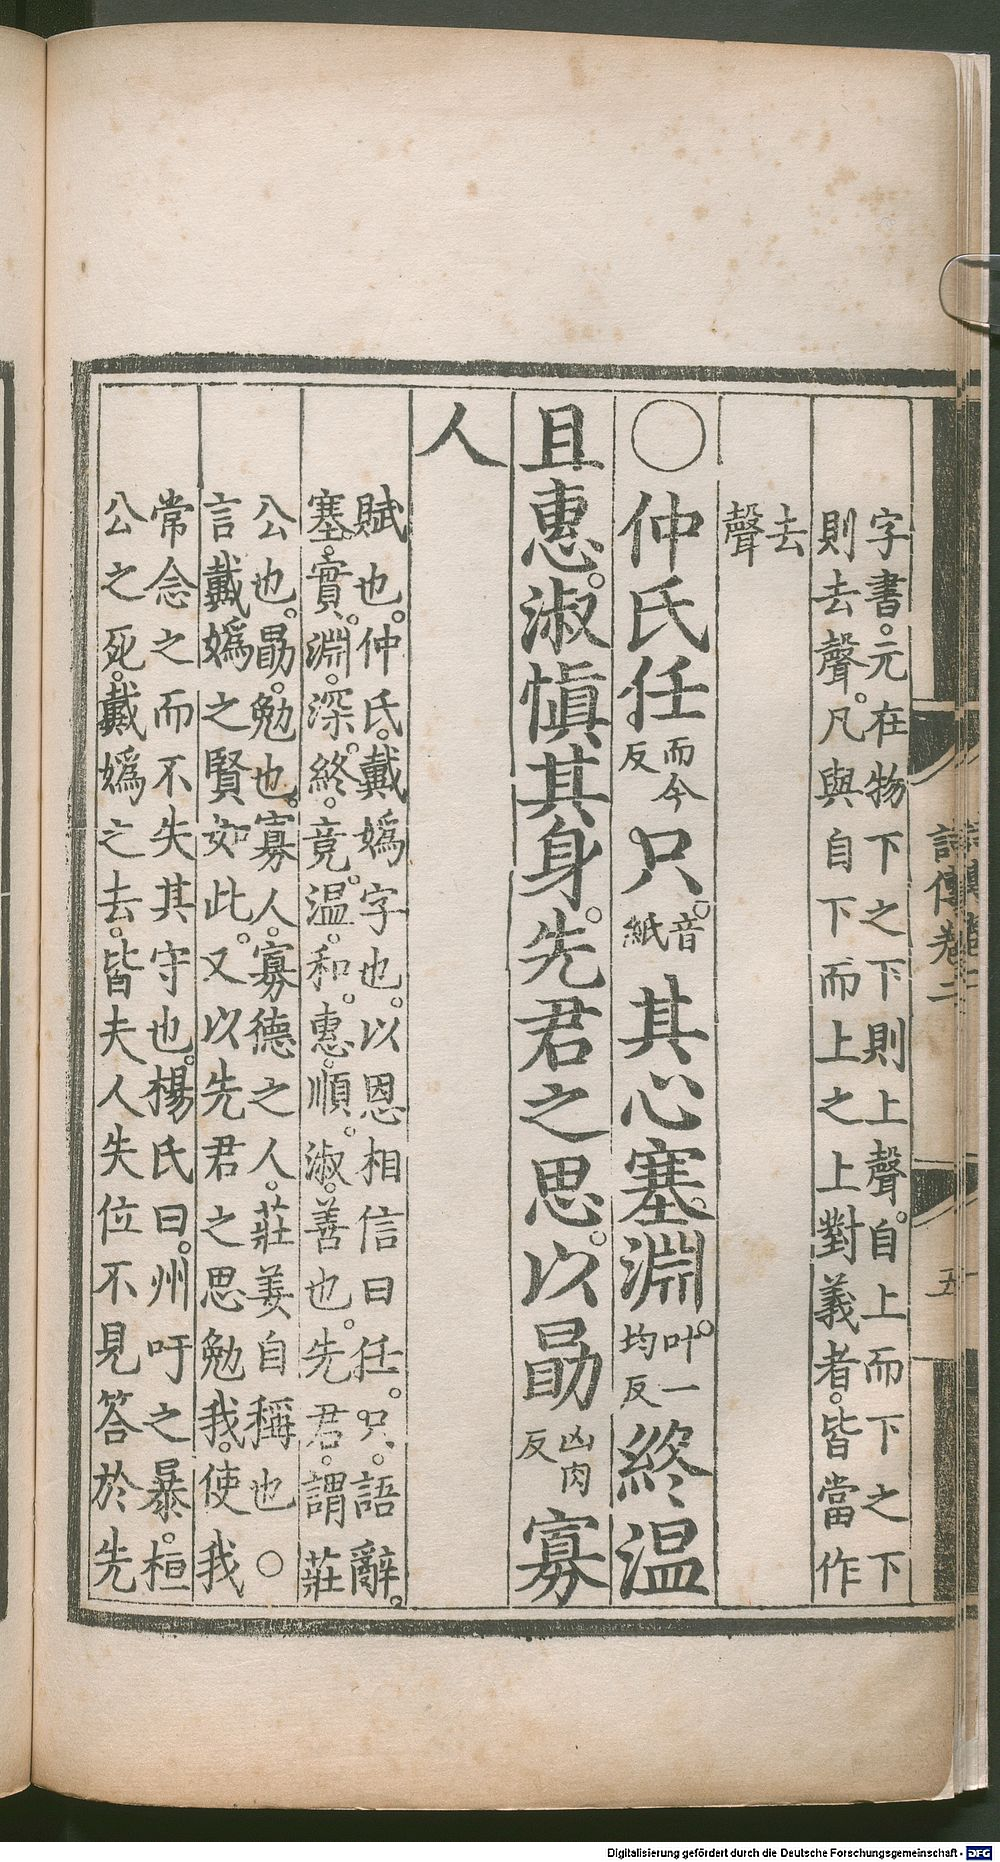 字書。元在物下之下則上聲。自上而下之下
則去聲。凡與自下而上之上對義者。皆當作
去
聲
○仲氏任。而今反只。音紙其心塞淵。叶一均反終温
且惠。淑愼其身。先君之思。以勗凶肉反寡
人
賦也。仲氏。戴嬀字也。以恩相信曰任。只。語辭。
塞。實。淵。深。終。竟。温。和。惠。順。淑。善也。先君。謂莊
公也。勗。勉也。寡人。寡德之人。莊姜自稱也○
言戴嬀之賢如此。又以先君之思勉我。使我
常念之而不失其守也。楊氏曰。州吁之暴。桓
公之死。戴嬀之去。皆夫人失位不見答於先
詩傳卷二
五
Digitalisierung gefördert durch die Deutsche Forschungsgemeinschaft - DFG